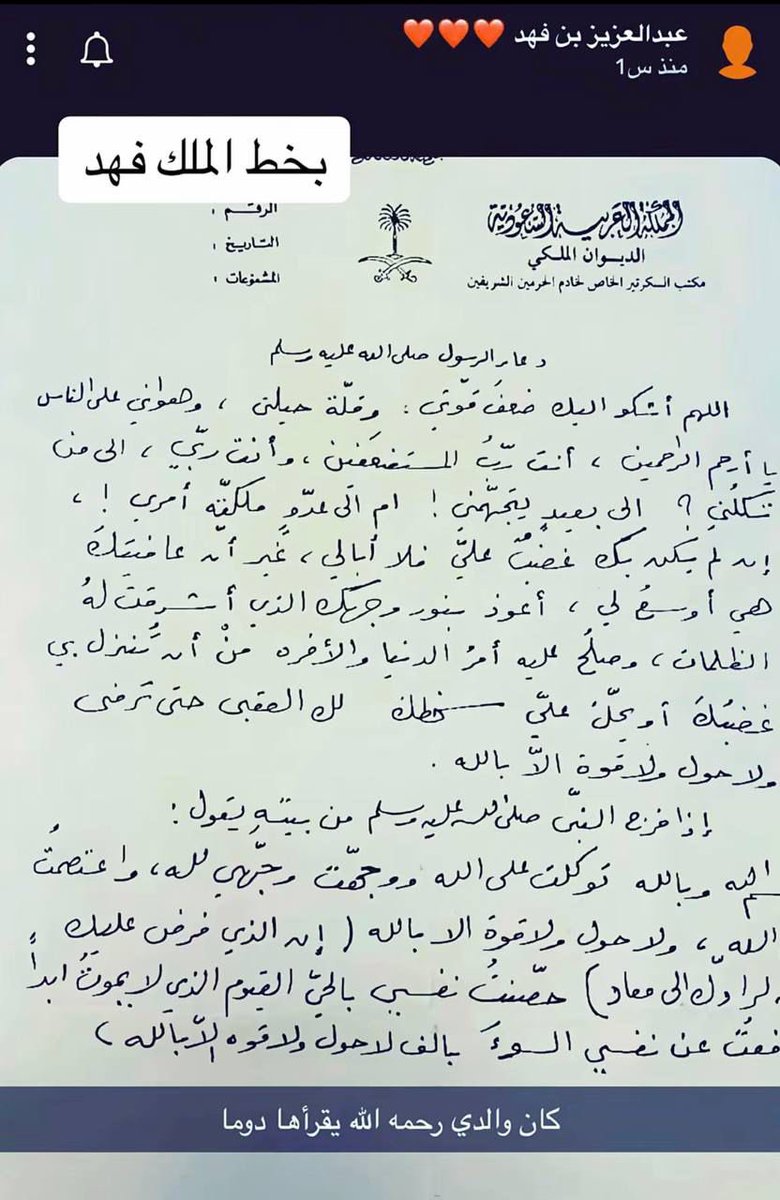 عبدالعزيز بن فهد ❤️❤️❤️
منذ س1
بخط الملك فهد
المملكة العربية السعودية
الديوان الملكي
مكتب السكرتير الخاص لخادم الحرمين الشريفين
الرقم :
التاريخ :
المشفوعات :
دعاء الرسول صلى الله عليه وسلم
اللهم أشكو اليك ضعفَ قوّتي : وقلّة حيلتي ، وهواني على الناس
يا أرحم الراحمين ، أنت ربُّ المستضعفين ، وأنت ربّي ، الى من
تَكِلُني ؟ الى بعيدٍ يتجهّمني ! ام الى عدّوٍ ملكتّه أمري ! ،
إن لم يكن بك غضبٌ عليّ فلا أبالي ، غير أن عافيتكَ
هي أوسعُ لي ، أعوذ بنور وجهك الذي أشرقت لهُ
الظلمات ، وصلُح عليه أمرُ الدنيا والأخره منْ أن تُنزل بي
غضبَكَ أو يحلّ عليّ سخطك لك العقبى حتى ترضى
ولا حول ولا قوة الاّ بالله .
إذا خرج النبّي صلى الله عليه وسلم من بيتهِ يقول :
بسم الله وبالله توكلت على الله ووجهّت وجّهي لله ، واعتصمتُ
بالله ، ولا حول ولا قوة الا بالله ( إن الذي فرض عليك
لرادّك الى معاد ) حصّنتُ نفسي بالحيّ القيوم الذي لا يموتُ ابداً
فعتُ عن نفسي السوءَ بالف لا حول ولا قوه الاّ بالله )
كان والدي رحمه الله يقرأها دوما